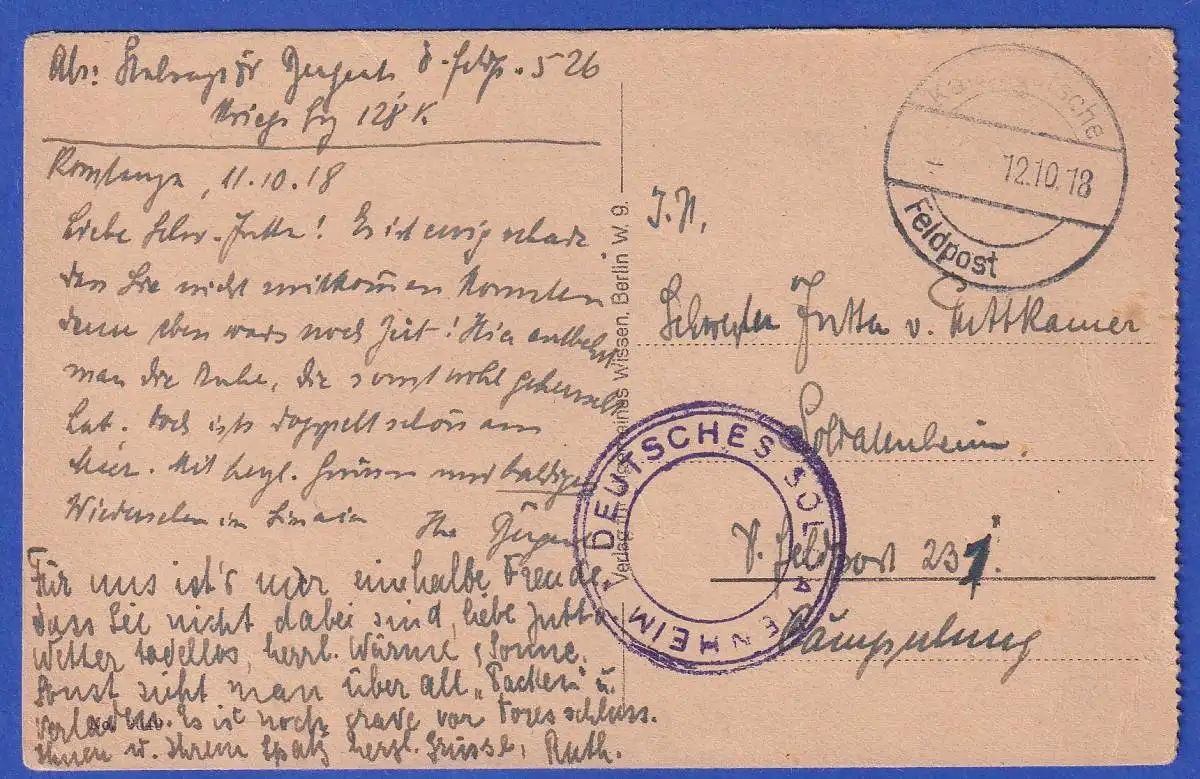 Abs: Jürgens d. Feldp. 526
Kriegs Laz 128 K.
Konstanza, 11.10.18
Liebe Schw. Jutta! Es ist ewig schade
den Sie nicht mitkommen konnten
denn eben wars noch Zeit! Hier entbehrt
man die Ruhe, die sonst wohl geherrscht
hat. Doch ists doppelt schön am
Meer. Mit herzl. Grüssen und baldiges
Wiedersehen in Sinaia
Ihr Jürgens
Für uns ist's nur eine halbe Freude,
dass Sie nicht dabei sind, liebe Jutta
Wetter tadellos, herrl. Wärme, Sonne.
Sonst sieht man über all „Packen" u.
verladen. Es ist noch grade vor Toresschluss.
Ihnen u. Ihrem Spatz herzl. Grüsse, Ruth.
Verlag Wissen, Berlin W. 9.
12.10.18
Feldpost
Schwester Jutta v. Puttkamer
Soldatenheim
D. Feldpost 231.
Câmpulung
DEUTSCHES SOLDATENHEIM